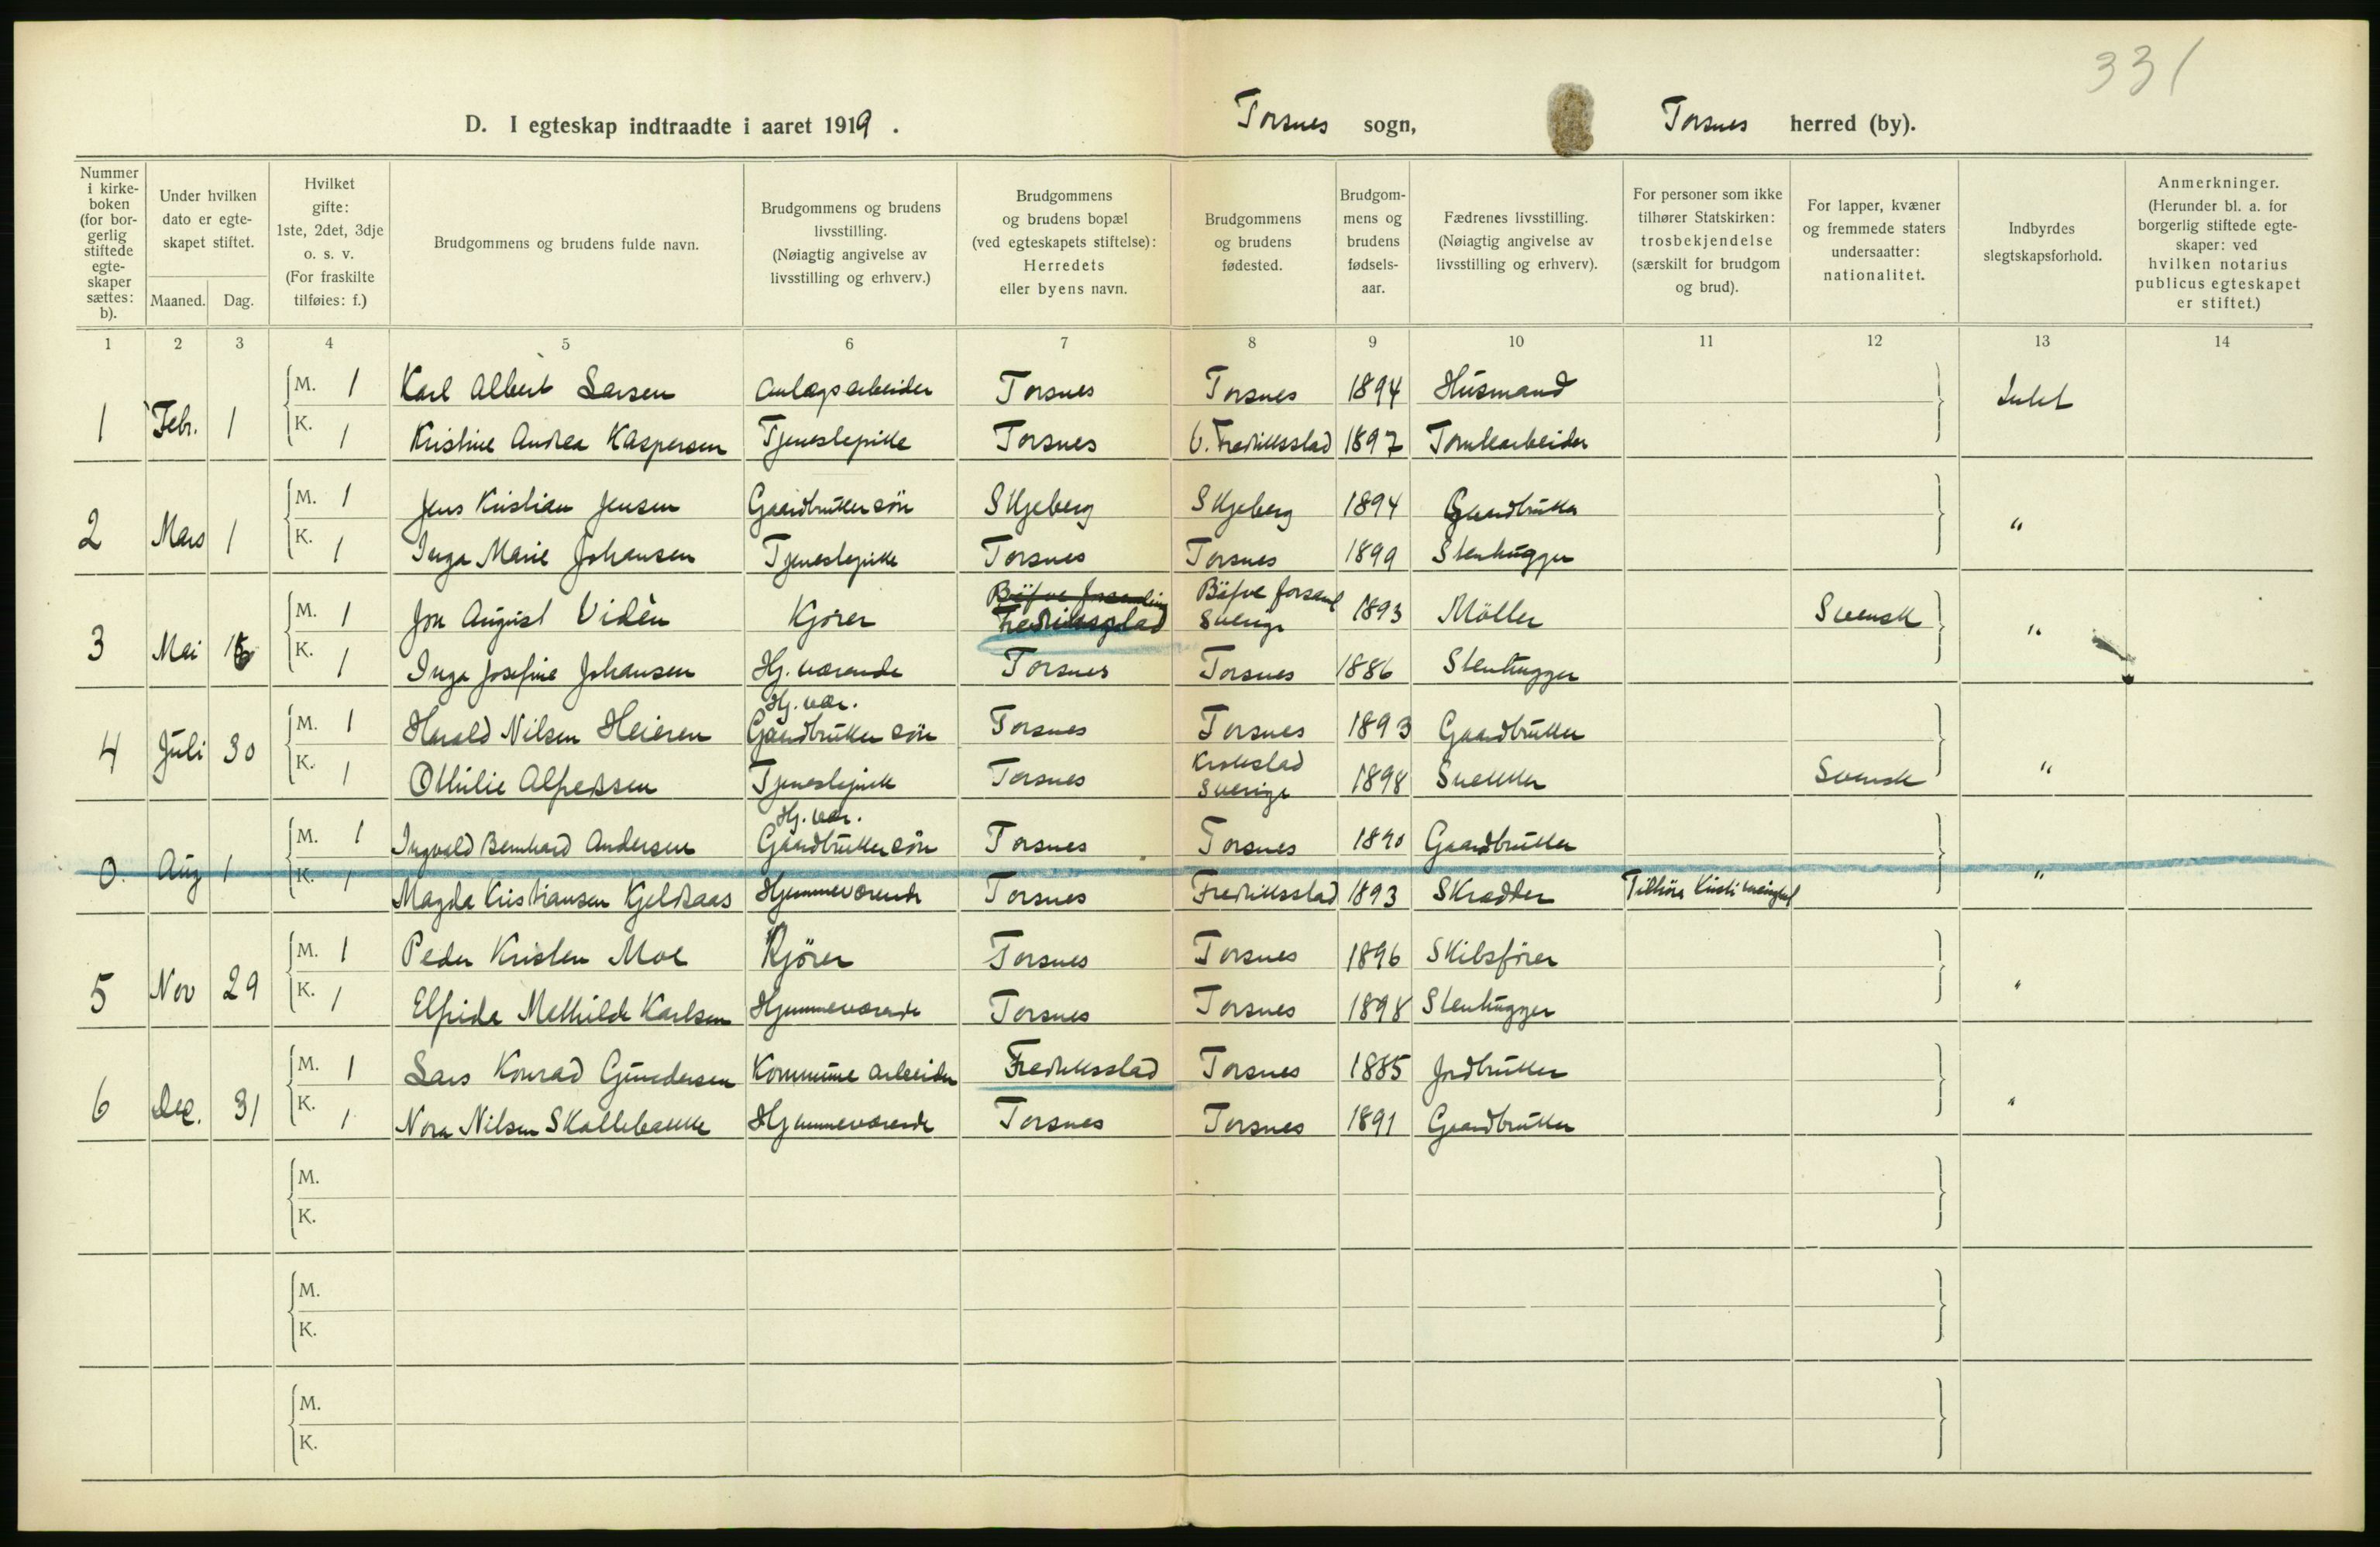 331
D. I egteskap indtraadte i aaret 1919. Torsnes sogn, Torsnes herred (by).
Nummer i kirke-boken (for bor-gerlig stiftede egte-skaper sættes: b). | Under hvilken dato er egte-skapet stiftet. Maaned. Dag. | Hvilket gifte: 1ste, 2det, 3dje o. s. v. (For fraskilte tilføies: f.) | Brudgommens og brudens fulde navn. | Brudgommens og brudens livsstilling. (Nøiagtig angivelse av livsstilling og erhverv.) | Brudgommens og brudens bopæl (ved egteskapets stiftelse): Herredets eller byens navn. | Brudgommens og brudens fødested. | Brudgom-mens og brudens fødsels-aar. | Fædrenes livsstilling. (Nøiagtig angivelse av livsstilling og erhverv). | For personer som ikke tilhører Statskirken: trosbekjendelse (særskilt for brudgom og brud). | For lapper, kvæner og fremmede staters undersaatter: nationalitet. | Indbyrdes slegtskapsforhold. | Anmerkninger. (Herunder bl. a. for borgerlig stiftede egte-skaper: ved hvilken notarius publicus egteskapet er stiftet.)
1 2 3 4 5 6 7 8 9 10 11 12 13 14
1 Febr. 1 M. 1 Karl Albert Larsen Anlægsarbeider Torsnes Torsnes 1894 Husmand Intet
K. 1 Kristine Andrea Kaspersen Tjenestepike Torsnes Fredriksstad 1897 Tomtearbeider
2 Mars 1 M. 1 Jens Kristian Jensen Gaardbruker søn Skjeberg Skjeberg 1894 Gaardbruker "
K. 1 Inga Marie Johansen Tjenestepike Torsnes Torsnes 1899 Stenhugger
Bäfve forsamling Bäfve forsaml
3 Mai M. 1 Jon August Vidèn Kjører Fredriksstad Sverige 1893 Möller Svensk "
K. 1 Inga Josefine Johansen Hj. værende Torsnes Torsnes 1886 Stenhugger
Hj. vær.
4 Juli 30 M. 1 Harald Nilsen Heieren Gaardbruker søn Torsnes Torsnes 1893 Gaardbruker
Krokstad
K. 1 Othilie Alfredssen Tjenestepike Torsnes Sverige 1898 Snekker Svensk "
Hj. vær.
0. Aug 1 M. 1 Ingvald Bernhard Andersen Gaardbruker søn Torsnes Torsnes 1890 Gaardbruker "
K. 1 Magda Kristiansen Kjeldsaas Hjemmeværende Torsnes Fredriksstad 1893 Skrædder Tilhöre
5 Nov 29 M. 1 Peder Kristen Moe Kjörer Torsnes Torsnes 1896 Skibsfører "
K. 1 Elfrida Mathilde Karlsen Hjemmeværende Torsnes Torsnes 1898 Stenhugger
6 Dec. 31 M. 1 Lars Konrad Gundersen Kommune arbeider Fredriksstad Torsnes 1885 Jordbruker "
K. 1 Nora Nilsen Skallebække Hjemmeværende Torsnes Torsnes 1891 Gaardbruker
M.
K.
M.
K.
M.
K.